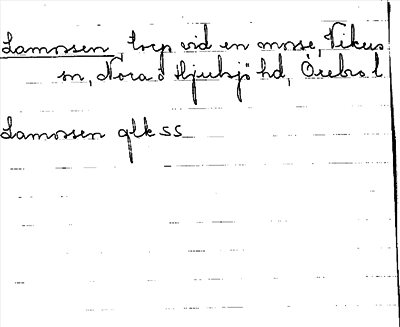 Lamossen, torp vid en mosse, Vikers
sn, Nora o Hjulsjö hd, Örebro l
Lamossen glk ss